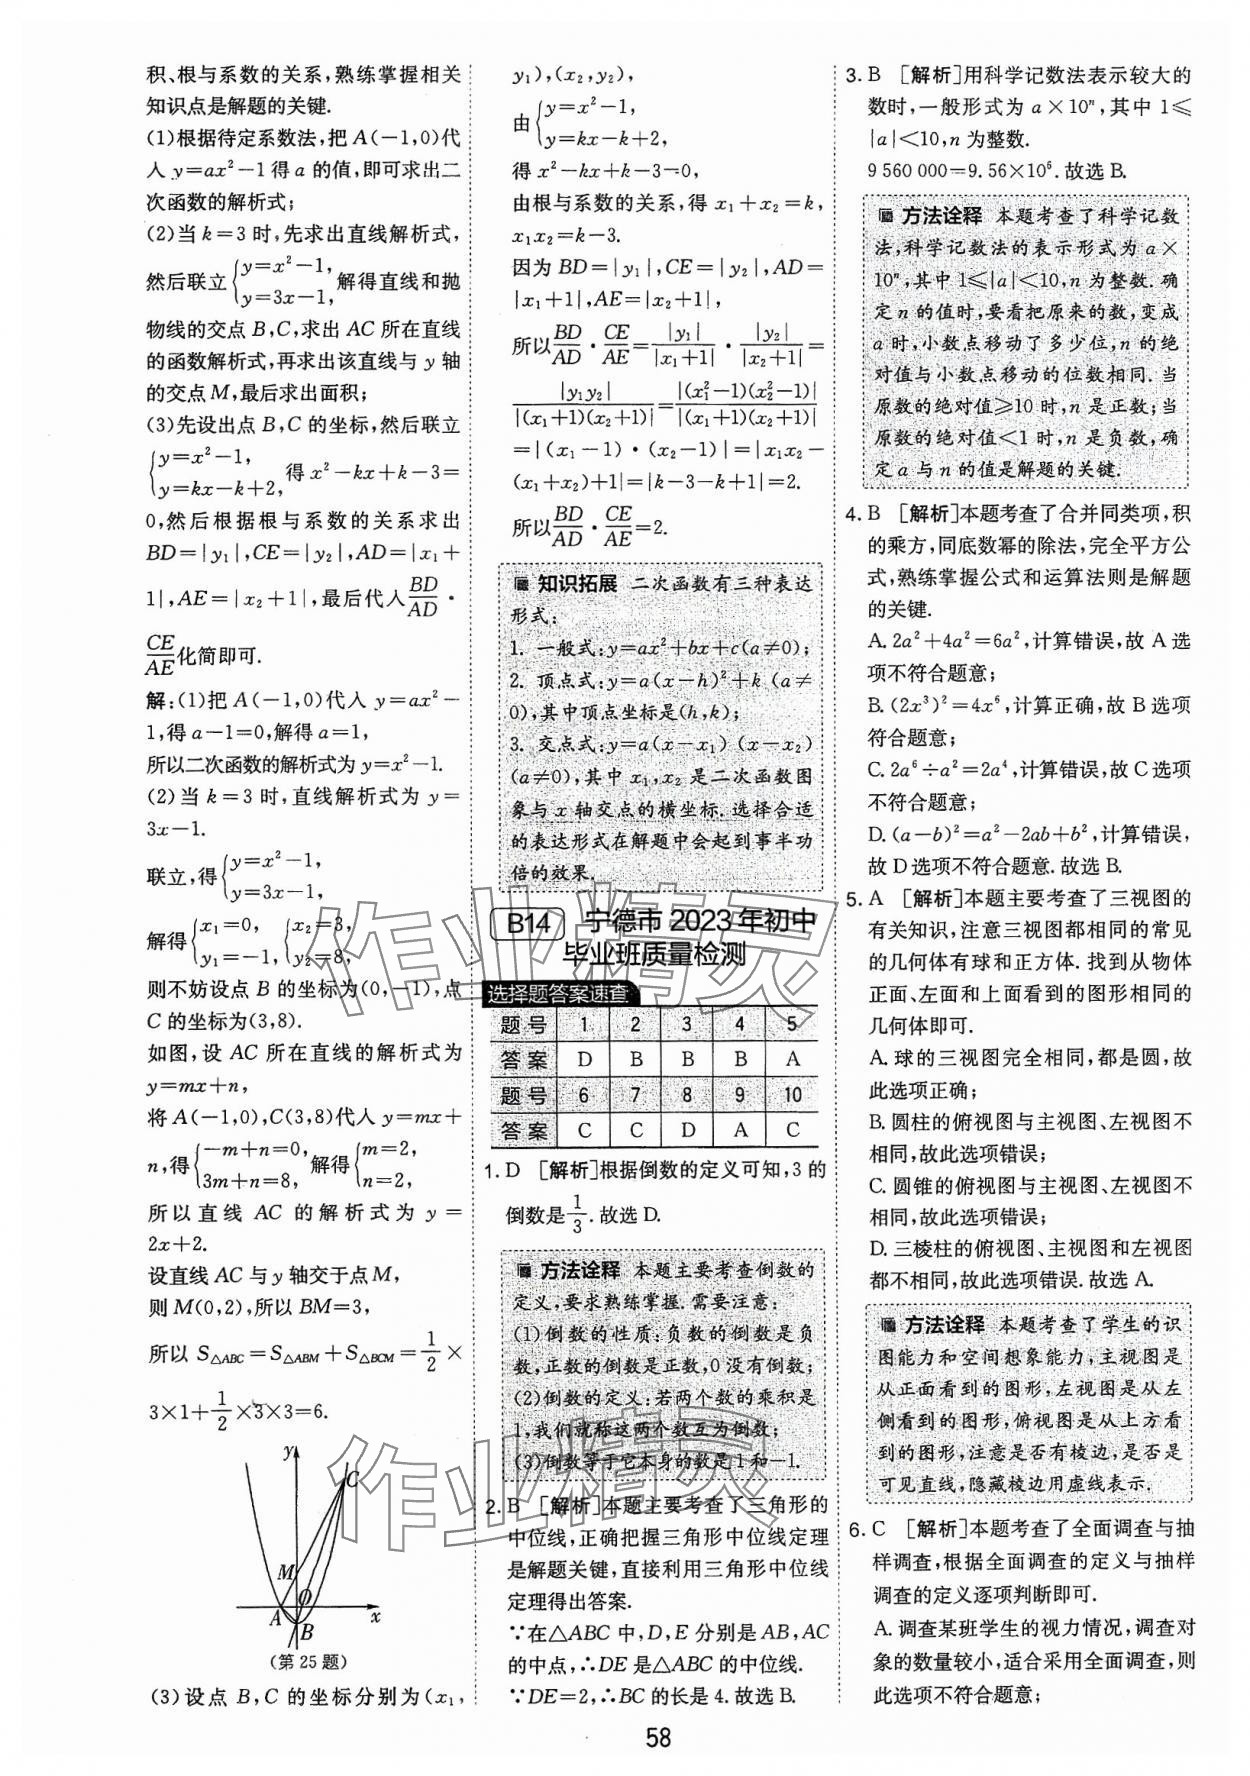 积、根与系数的关系,熟练掌握相关
知识点是解题的关键.
(1)根据待定系数法,把 A(-1,0)代
入 y=ax²-1 得 a 的值,即可求出二
次函数的解析式;
(2)当 k=3 时,先求出直线解析式,
然后联立{y=x²-1, y=3x-1, 解得直线和抛
物线的交点 B,C,求出 AC 所在直线
的函数解析式,再求出该直线与 y 轴
的交点 M,最后求出面积;
(3)先设出点 B,C 的坐标,然后联立
{y=x²-1, y=kx-k+2, 得 x²-kx+k-3=
0,然后根据根与系数的关系求出
BD=|y₁|,CE=|y₂|,AD=|x₁+
1|,AE=|x₂+1|,最后代入BD/AD·
CE/AE化简即可.
解:(1)把 A(-1,0)代入 y=ax²-
1,得 a-1=0,解得 a=1,
所以二次函数的解析式为 y=x²-1.
(2)当 k=3 时,直线解析式为 y=
3x-1.
联立,得{y=x²-1, y=3x-1,
解得{x₁=0, y₁=-1, {x₂=3, y₂=8,
则不妨设点 B 的坐标为(0,-1),点
C 的坐标为(3,8).
如图,设 AC 所在直线的解析式为
y=mx+n,
将 A(-1,0),C(3,8)代入 y=mx+
n,得{-m+n=0, 3m+n=8, 解得{m=2, n=2,
所以直线 AC 的解析式为 y=
2x+2.
设直线 AC 与 y 轴交于点 M,
则 M(0,2),所以 BM=3,
所以 S△ABC=S△ABM+S△BCM=1/2×
3×1+1/2×3×3=6.
y
C
M
O
A
x
B
(第 25 题)
(3)设点 B,C 的坐标分别为(x₁,
y₁),(x₂,y₂),
由{y=x²-1, y=kx-k+2,
得 x²-kx+k-3=0,
由根与系数的关系,得 x₁+x₂=k,
x₁x₂=k-3.
因为 BD=|y₁|,CE=|y₂|,AD=
|x₁+1|,AE=|x₂+1|,
所以BD/AD·CE/AE=|y₁|/|x₁+1|·|y₂|/|x₂+1|=
|y₁y₂|/|(x₁+1)(x₂+1)|=|(x₁²-1)(x₂²-1)|/|(x₁+1)(x₂+1)|
=|(x₁-1)·(x₂-1)|=|x₁x₂-
(x₁+x₂)+1|=|k-3-k+1|=2.
所以BD/AD·CE/AE=2.
知识拓展 二次函数有三种表达
形式:
1. 一般式:y=ax²+bx+c(a≠0);
2. 顶点式:y=a(x-h)²+k (a≠
0),其中顶点坐标是(h,k);
3. 交点式:y=a(x-x₁)(x-x₂)
(a≠0),其中 x₁,x₂ 是二次函数图
象与 x 轴交点的横坐标. 选择合适
的表达形式在解题中会起到事半功
倍的效果.
B14 宁德市 2023 年初中
毕业班质量检测
选择题答案速查
题号 1 2 3 4 5
答案 D B B B A
题号 6 7 8 9 10
答案 C C D A C
1. D [解析]根据倒数的定义可知,3 的
倒数是1/3.故选 D.
方法诠释 本题主要考查倒数的
定义,要求熟练掌握.需要注意:
(1)倒数的性质:负数的倒数是负
数,正数的倒数是正数,0 没有倒数;
(2)倒数的定义:若两个数的乘积是
1,我们就称这两个数互为倒数;
(3)倒数等于它本身的数是 1 和-1.
2. B [解析]本题主要考查了三角形的
中位线,正确把握三角形中位线定理
是解题关键,直接利用三角形中位线
定理得出答案.
∵在△ABC 中,D,E 分别是 AB,AC
的中点,∴DE 是△ABC 的中位线.
∵DE=2,∴BC 的长是 4.故选 B.
3. B [解析]用科学记数法表示较大的
数时,一般形式为 a×10ⁿ,其中 1≤
|a|<10,n 为整数.
9 560 000=9.56×10⁶.故选 B.
方法诠释 本题考查了科学记数
法,科学记数法的表示形式为 a×
10ⁿ,其中 1≤|a|<10,n 为整数.确
定 n 的值时,要看把原来的数,变成
a 时,小数点移动了多少位,n 的绝
对值与小数点移动的位数相同.当
原数的绝对值≥10 时,n 是正数;当
原数的绝对值<1 时,n 是负数,确
定 a 与 n 的值是解题的关键.
4. B [解析]本题考查了合并同类项,积
的乘方,同底数幂的除法,完全平方公
式,熟练掌握公式和运算法则是解题
的关键.
A. 2a²+4a²=6a²,计算错误,故 A 选
项不符合题意;
B. (2x³)²=4x⁶,计算正确,故 B 选项
符合题意;
C. 2a⁶÷a²=2a⁴,计算错误,故 C 选项
不符合题意;
D. (a-b)²=a²-2ab+b²,计算错误,
故 D 选项不符合题意.故选 B.
5. A [解析]本题主要考查了三视图的
有关知识,注意三视图都相同的常见
的几何体有球和正方体.找到从物体
正面、左面和上面看到的图形相同的
几何体即可.
A. 球的三视图完全相同,都是圆,故
此选项正确;
B. 圆柱的俯视图与主视图、左视图不
相同,故此选项错误;
C. 圆锥的俯视图与主视图、左视图不
相同,故此选项错误;
D. 三棱柱的俯视图、主视图和左视图
都不相同,故此选项错误.故选 A.
方法诠释 本题考查了学生的识
图能力和空间想象能力,主视图是
从正面看到的图形,左视图是从左
侧看到的图形,俯视图是从上方看
到的图形,注意是否有棱边,是否是
可见直线,隐藏棱边用虚线表示.
6. C [解析]本题考查了全面调查与抽
样调查,根据全面调查的定义与抽样
调查的定义逐项判断即可.
A. 调查某班学生的视力情况,调查对
象的数量较小,适合采用全面调查,则
此选项不符合题意;
58
作业精灵
作业精灵